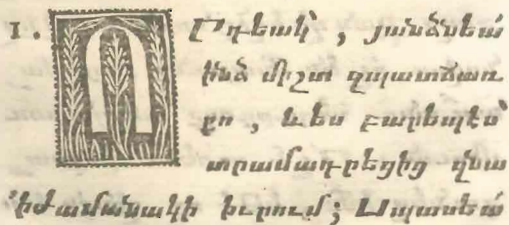 1. Որդեակ՝, յանձնեա՛
ինձ միշտ զպատճառ
քո, և ես բարեպէս՝
տրամադրեցից զնա
՚ի ժամանակի իւրում; Սպասեա՛